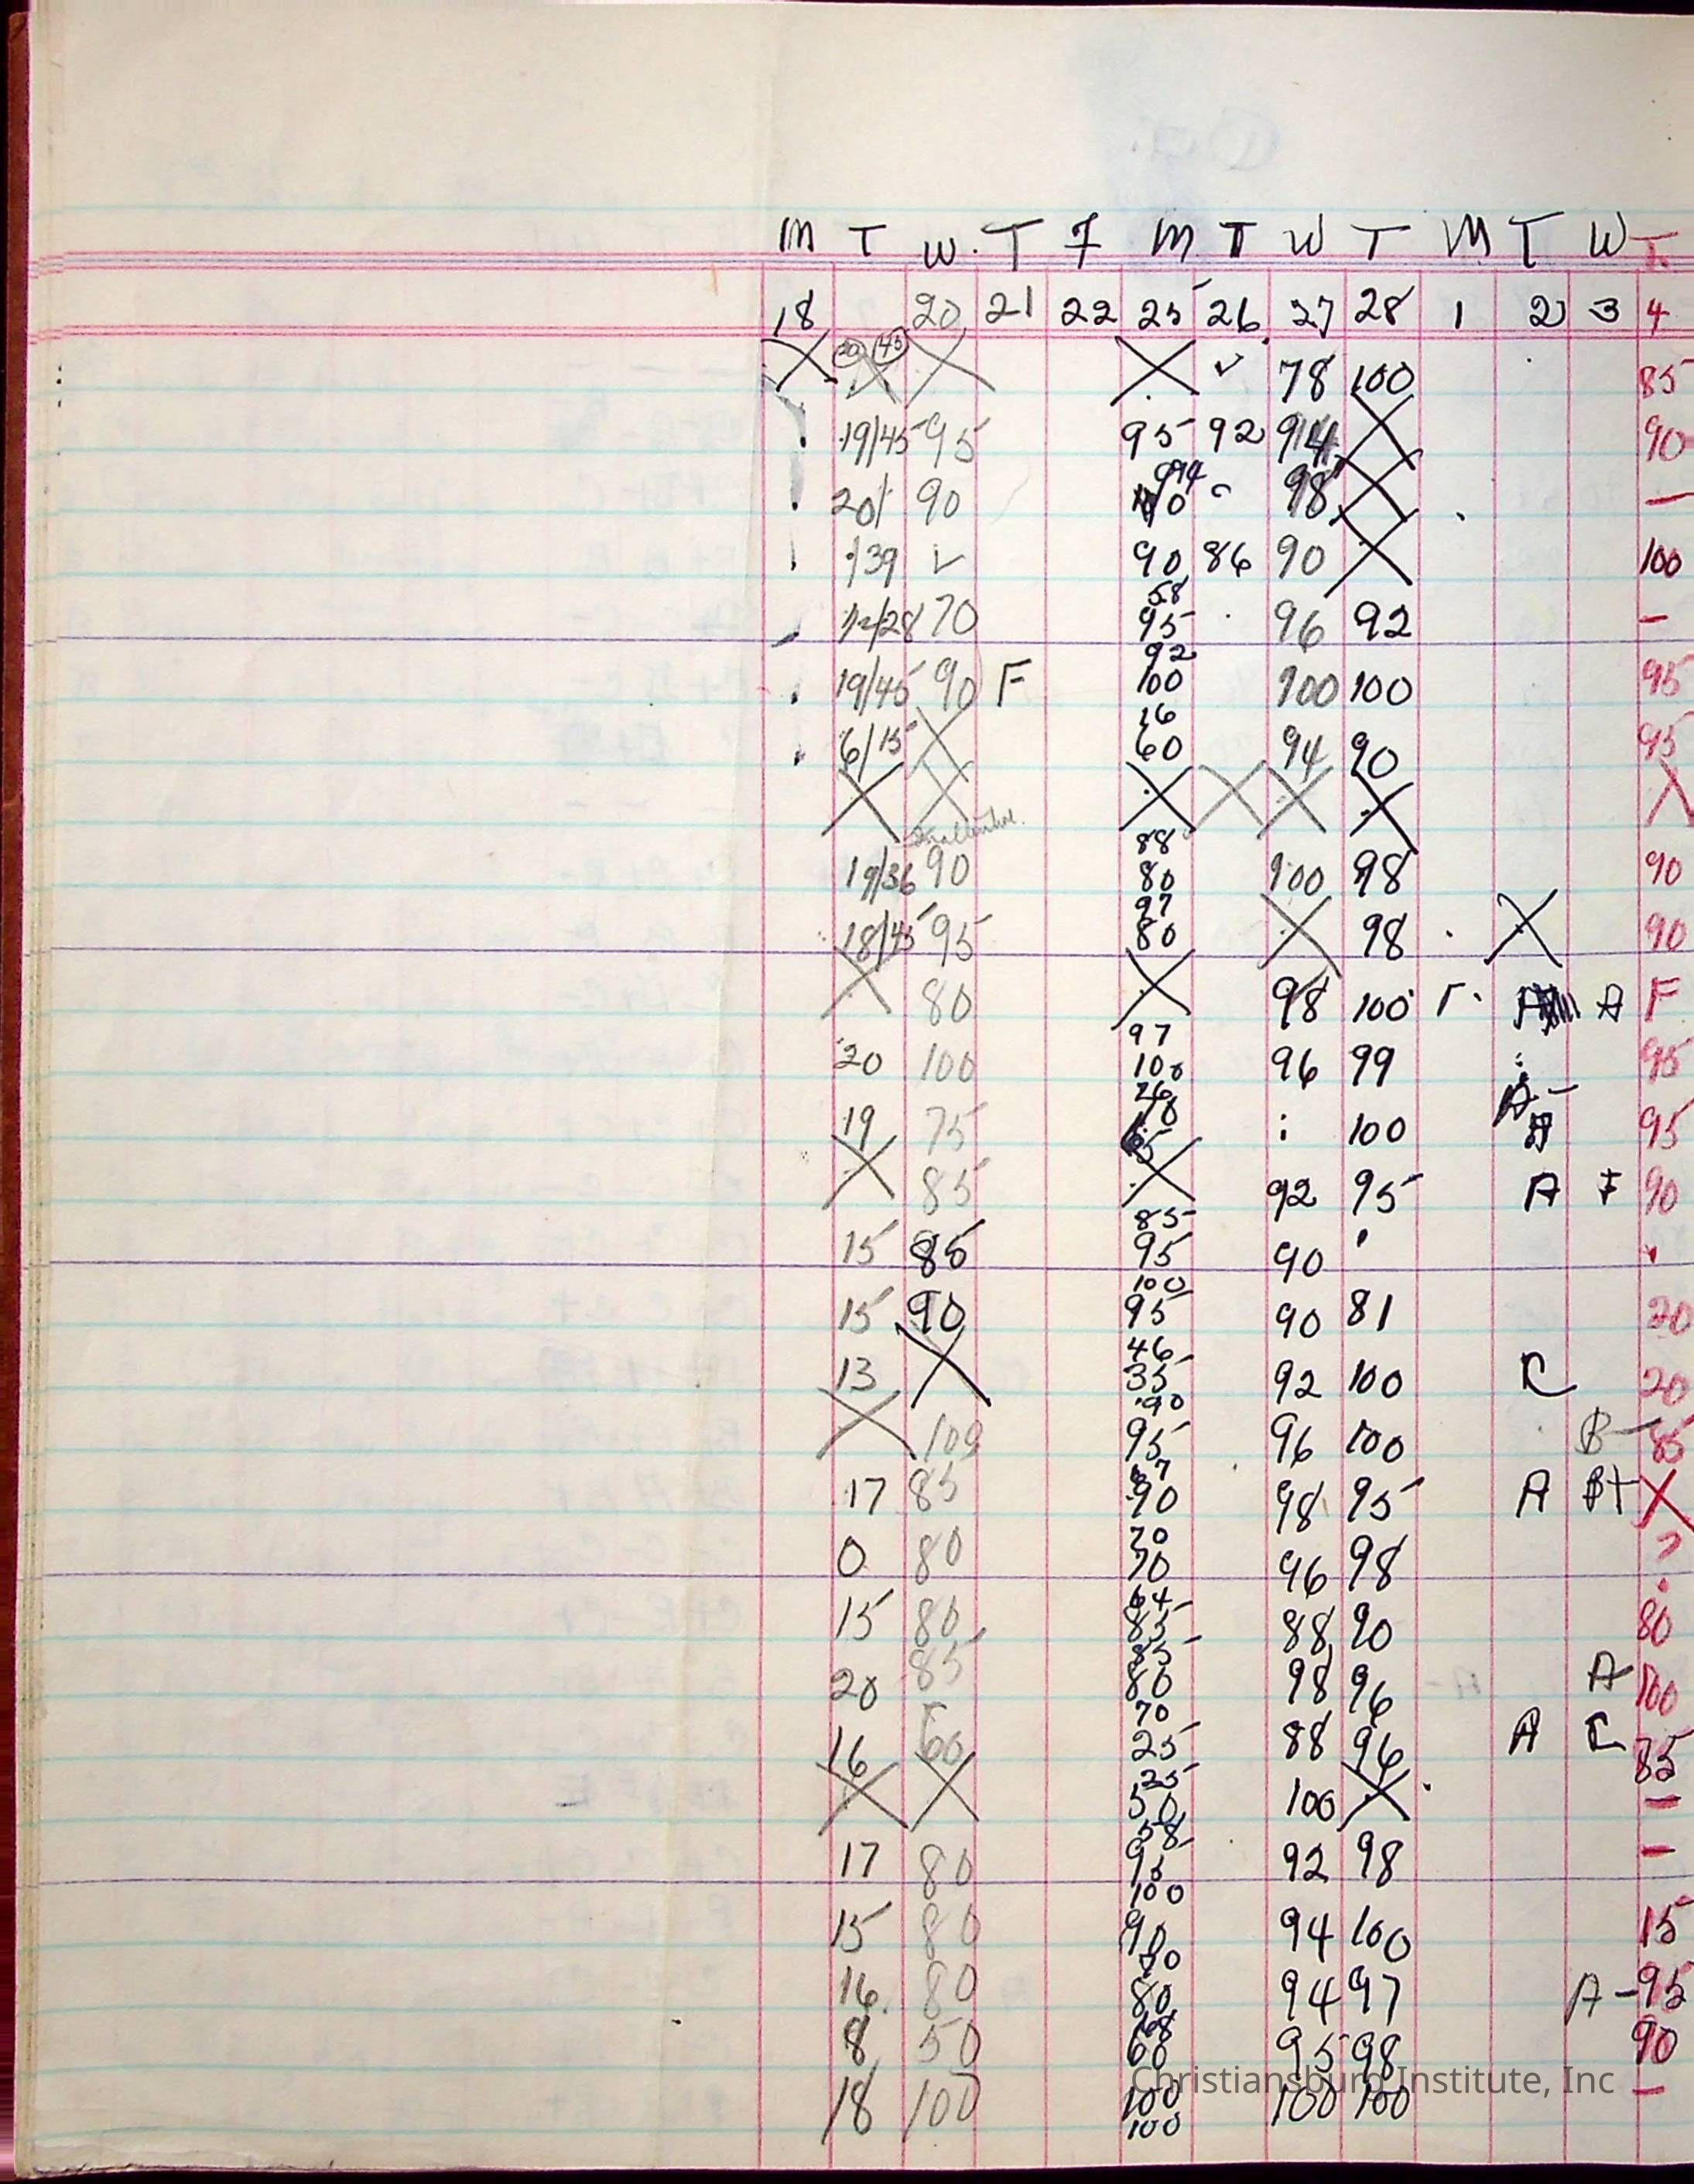 M T W. T F M T W T M T W T.
18 20 21 22 25 26 27 28 1 2 3 4
20 45 78 100 85
19/45 95 95 92 94 90
994
20/ 90 98 —
39 90 86 90 100
58
28 70 95 96 92 —
92
19/45 90 F 100 100 100 95
16
6/15 60 94 90 95
X X X X X X X
88
19/36 90 80 100 98 90
97
18/45 95 80 X 98 X 90
X 80 X 98 100 A F
97
20 100 100 96 99 95
19 75 100 95
X 85 X 92 95 A F 90
85
15 85 95 90
100
15 90 95 90 81 20
46
13 X 35 92 100 C 20
90
X 100 95 96 100 B- 85
17 85 90 98 95 A B+ X
70
0 80 70 96 98 ?
64
15 80 85 88 90 80
85
20 85 80 98 96 A 100
70
16 60 25 88 96 A C 85
25
X X 50 100 X —
58
17 80 95 92 98 —
100
15 80 90 94 100 15
80
16. 80 80 94 97 A- 95
68
8 50 60 95 98 90
18 100 100 100 100 —
100
Christiansburg Institute, Inc